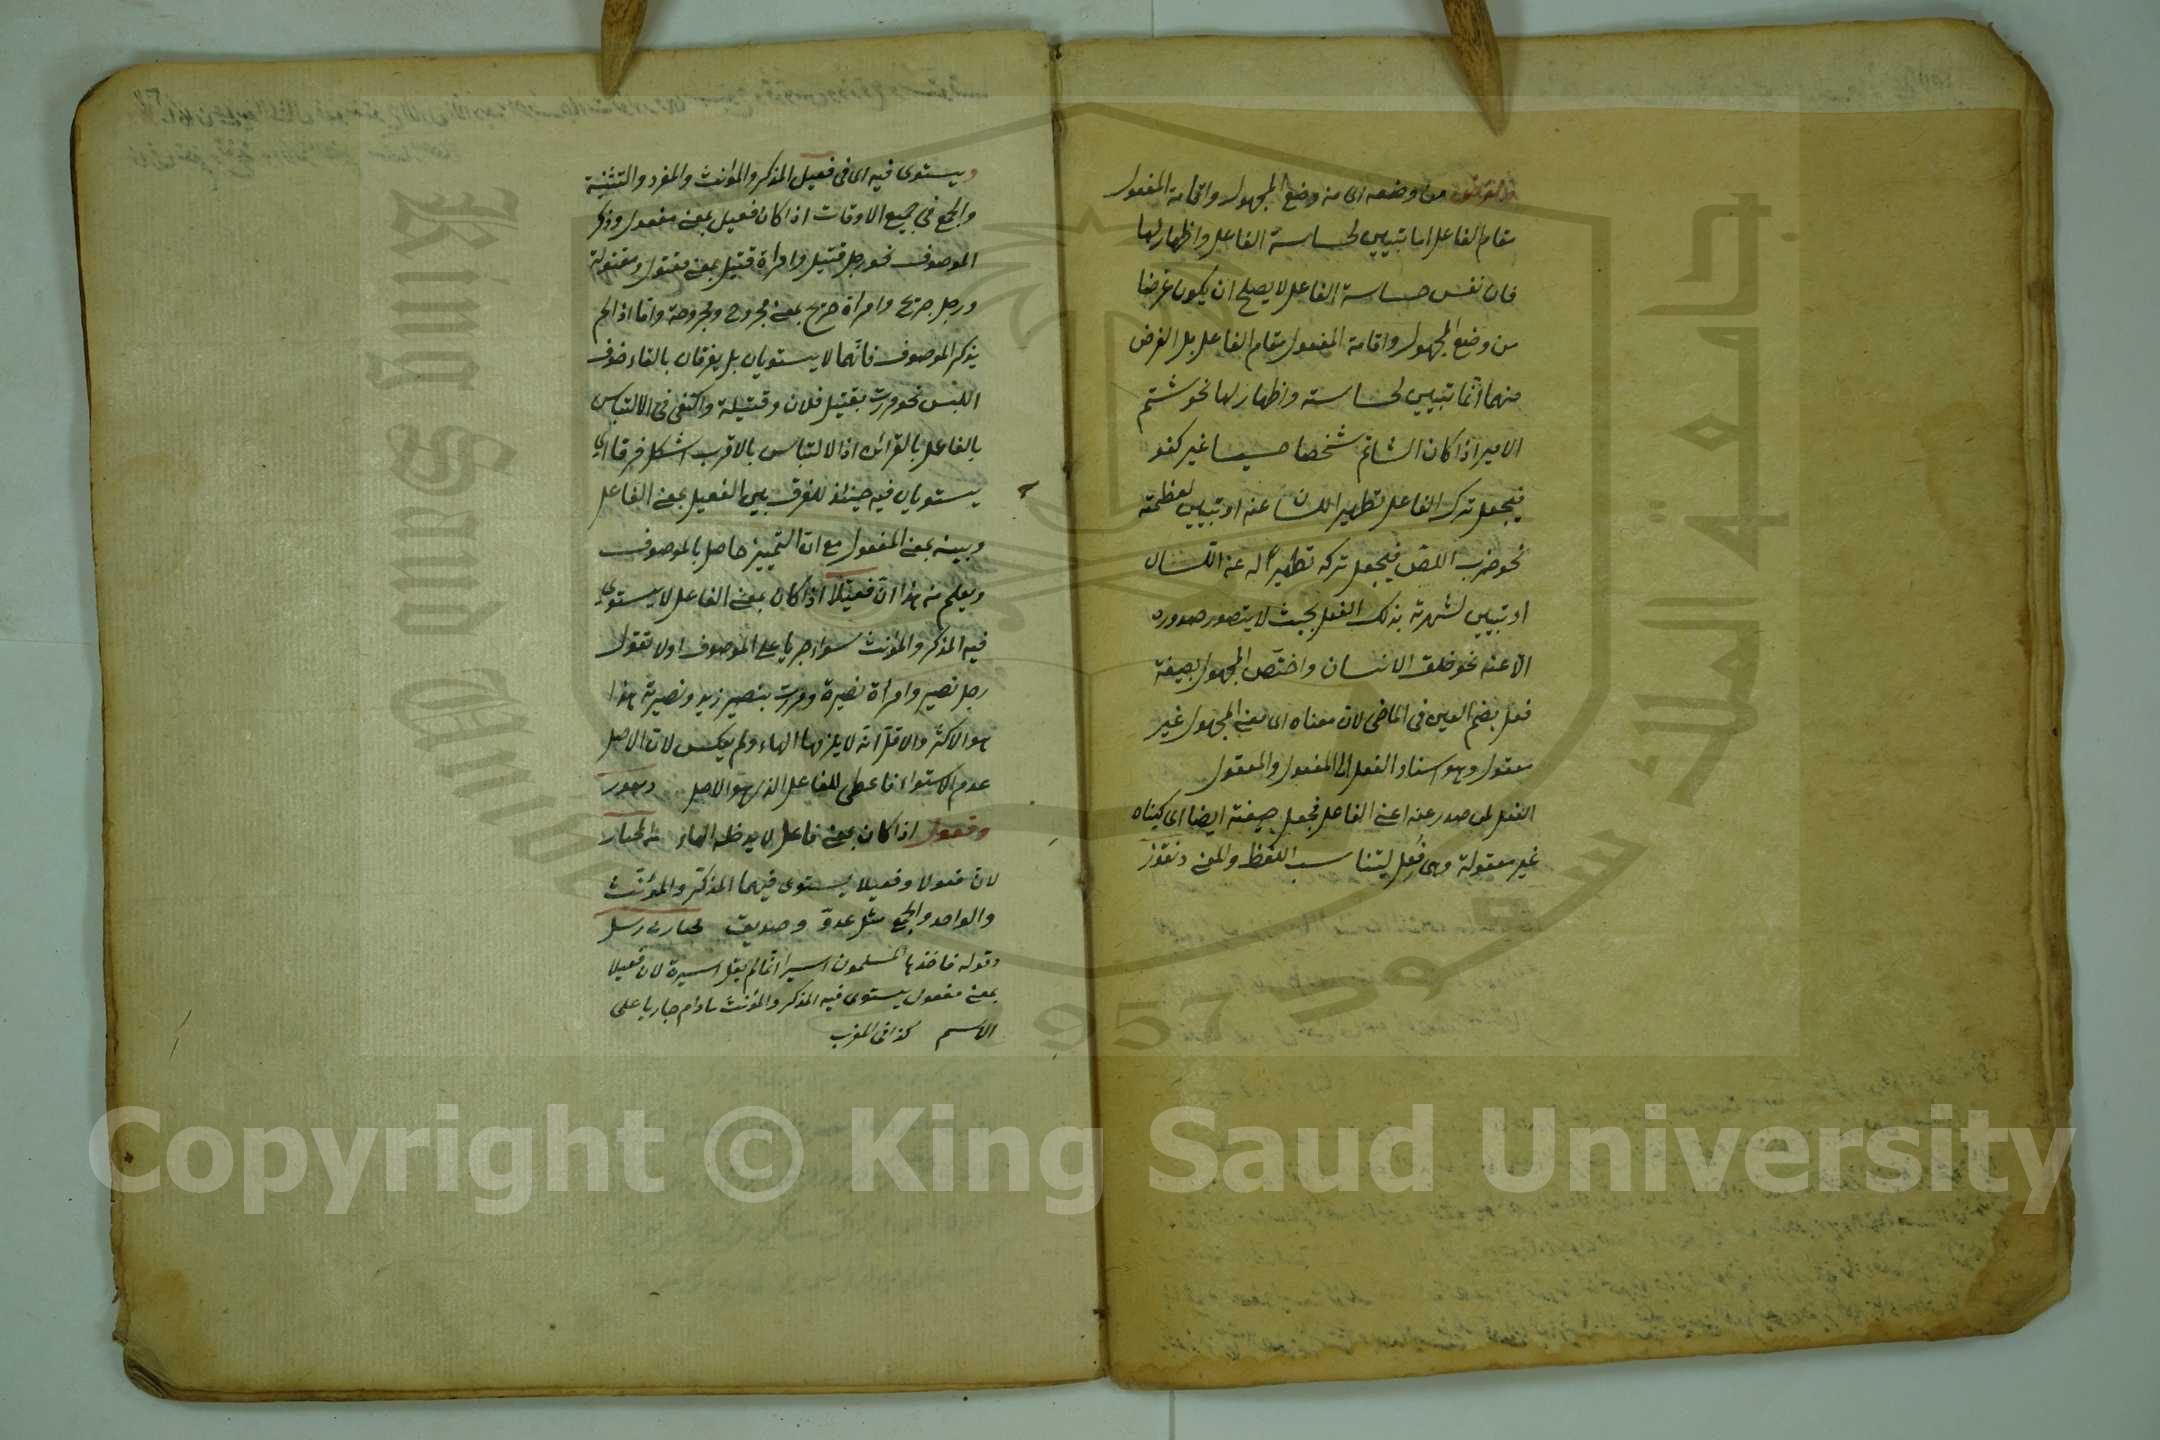 والغرض من وضعه اى من وضع المجهول واقامة المفعول
مقام الفاعل اما تبيين لخساسة الفاعل واظهار لها
فان نفس خساسة الفاعل لا يصلح ان يكون غرضا
من وضع المجهول واقامة المفعول مقام الفاعل بل الغرض
منهما انما تبيين لخساسته واظهار لها نحو شتم
الامير اذا كان الشاتم شخصا خسيسا غير كفو
فيجعل ترك الفاعل تطهير اللسان عنه او تبيين لعظمته
نحو ضرب اللص فيجعل تركه تطهيرا له عن اللسان
او تبيين لشهرته بذلك الفعل بحيث لا يتصور صدوره
الا عنه نحو خلق الانسان واختص المجهول بصيغة
فعل بضم العين فى الماضى لان معناه اى معنى المجهول غير
معقول وهو اسناد الفعل الى المفعول والمعقول
الفعل لمن صدر عنه اعنى الفاعل فجعل صيغة ايضا اى
غير معقولة وهى فُعِل ليتناسب اللفظ والمعنى
ويستوى فيه اى فى فعيل المذكر والمؤنث والمفرد والتثنية
والجمع فى جميع الاوقات اذا كان فعيل بمعنى مفعول وذكر
الموصوف نحو رجل قتيل وامراة قتيل بمعنى مقتول ومقتولة
ورجل جريح وامراة جريح بمعنى مجروح ومجروحة واما اذا لم
يذكر الموصوف فانهما لا يستويان بل يفرقان بالتاء خوف
اللبس نحو مررت بقتيل فلان وقتيلة واكتفى فى الالتباس
بالفاعل بالقرائن اذ الالتباس بالاقرب اشكل فرقا اى
يستويان فيه حينئذ للفرق بين الفعيل بمعنى الفاعل
وبينه بمعنى المفعول مع ان التمييز حاصل بالموصوف
ويعلم منه هذا ان فعيلا اذا كان بمعنى الفاعل لا يستوى
فيه المذكر والمؤنث سواء جريا على الموصوف او لا تقول
رجل نصير وامراة نصيرة ومررت بنصير زيد ونصيرته هذا
هو الاكثر والاقل انه لا يلزمها الهاء ولم يعكس لان الاصل
عدم الاستواء فاعطى للفاعل الذى هو الاصل
وفعول اذا كان بمعنى فاعل لا يدخله الهاء
لان فعولا وفعيلا يستوى فيهما المذكر والمؤنث
والواحد والجمع مثل عدو وصديق
وقوله فاخذها المسلمون اسيرا انما لم يقل اسيرة لان فعيلا
بمعنى مفعول يستوى فيه المذكر والمؤنث مادام جاريا على
الاسم كذا فى المغرب
جامعة الملك سعود
King Saud University
1957
Copyright © King Saud University